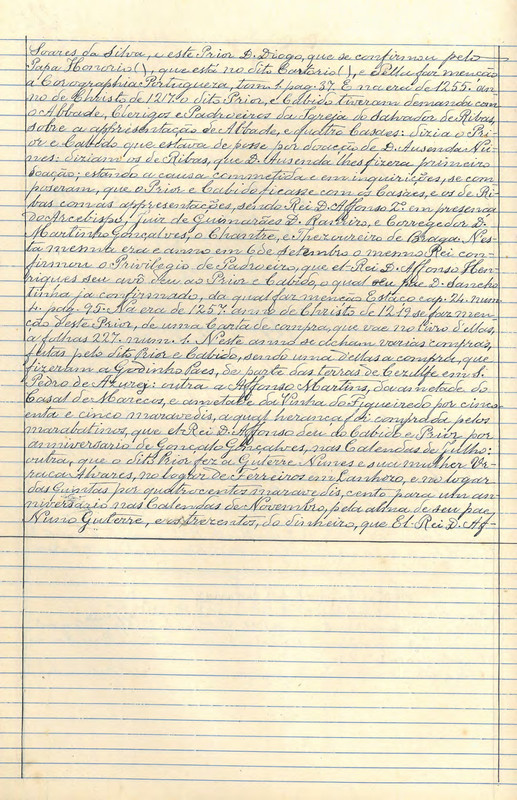 Soares da Silva, e este Prior D. Diogo, que se confirmou pelo
Papa Honorio (), que está no dito Cartorio (), e d'elle faz menção
a Corographia Portugueza, tom. 1. pag. 37. E na era de 1255. an-
no de Christo de 1217 o dito Prior, e Cabido tiveram demanda com
o Abbade, Clerigos e Padroeiros da Igreja do Salvador de Ribas,
sobre a appresentação de Abbade, e quatro Casaes: dizia o Pri-
or e Cabido que estava de posse por doação de D. Ausenda Nu-
nes: diziam os de Ribas, que D. Ausenda lhes fizera primeiro
doação; estando a causa commetida e em inquirições, se com-
poseram, que o Prior e Cabido ficasse com os Casaes, e os de Ri-
bas com as appresentações, sendo Rei D. Affonso 2º em presença
do Arcebispo, Juiz de Guimarães D. Ramiro, e Corregedor D.
Martinho Gonçalves, o Chantre, e Thezoureiro de Braga. N'es-
ta mesma era e anno em 6 de setembro o mesmo Rei con-
firmou o Privilegio de Padroeiro, que el-Rei D. Affonso Hen-
riques seu avô deu ao Prior e Cabido, o qual seu pae D. Sancho
tinha já confirmado, da qual faz menção Estaço cap. 24. num.
4. pag. 95. Na era de 1257. anno de Christo de 1219 se faz men-
ção deste Prior, de uma Carta de compra, que vae no livro d'ellas,
a folhas 22. num. 1. N'este anno se acham varias compras,
feitas pelo dito Prior e Cabido, sendo uma d'ellas a compra, que
fizeram a Godinho Paes, de parte das terras de em S.
Pedro de Azurei: outra a Affonso Martins, da ametade do
Casal de Marecos, e ametade da Vinha do Figueiredo por cinco-
enta e cinco maravedis, a qual herança foi comprada pelos
marabatinos, que el-Rei D. Affonso deu ao Cabido e Prior por
anniversario de Gonçalo Gonçalves, nas Calendas de julho:
outra, que o dito Prior fez a Guterre Nunes e sua mulher Ur-
raca Alvares, no logar de Ferreiros em Canhoro, e no logar
das Quintas por quatrocentos maravedis, cento para um an-
niversario nas Calendas de Novembro, pela alma de seu pae
Nuno Guterre, e os trezentos, do dinheiro, que El-Rei D. Af-